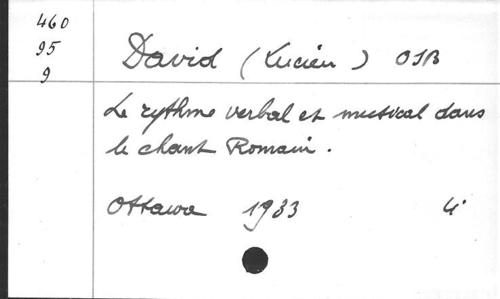 460
95
9
David (Lucien) OSB
Le rythme verbal et musical dans
le chant Romain.
Ottawa 1933 4°